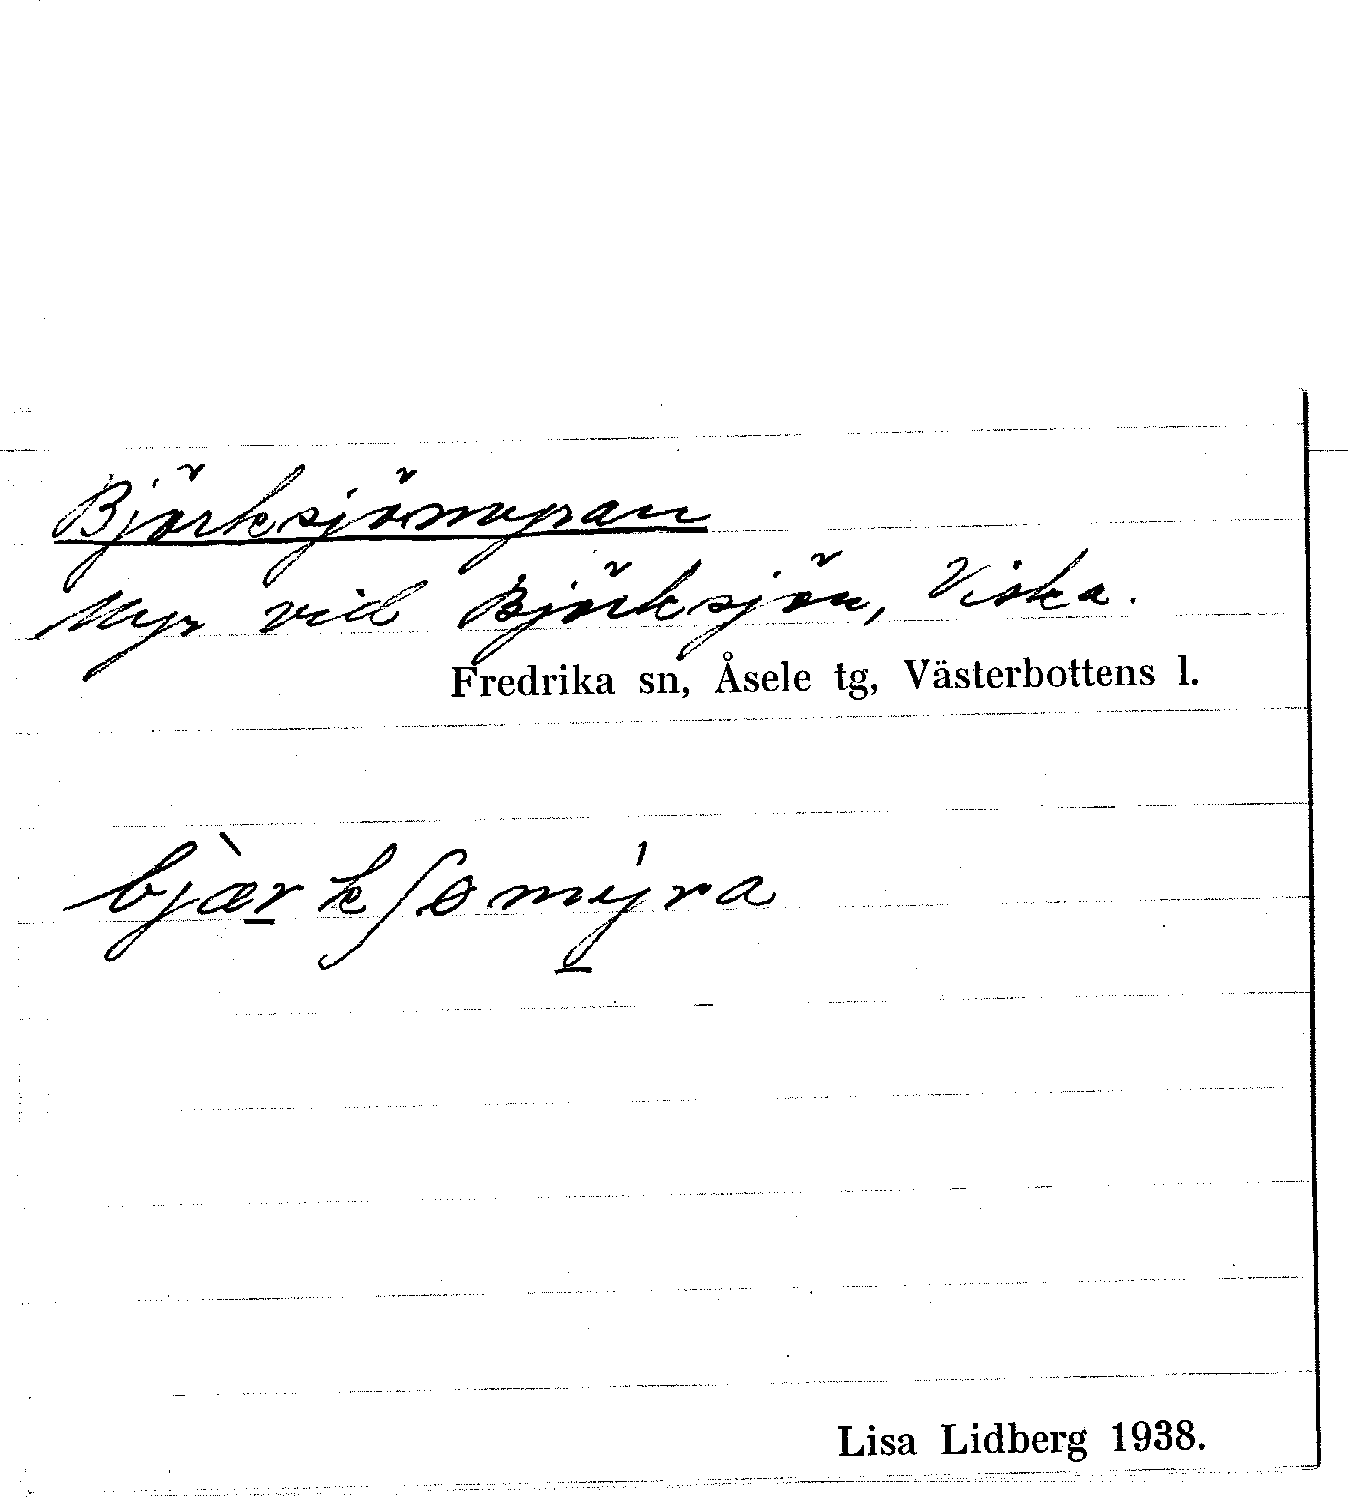 Björksjömyran
Myr vid Björksjön, Viska.
Fredrika sn, Åsele tg, Västerbottens l.
bjæ̀r̲kʃɵmý̲ra
Lisa Lidberg 1938.